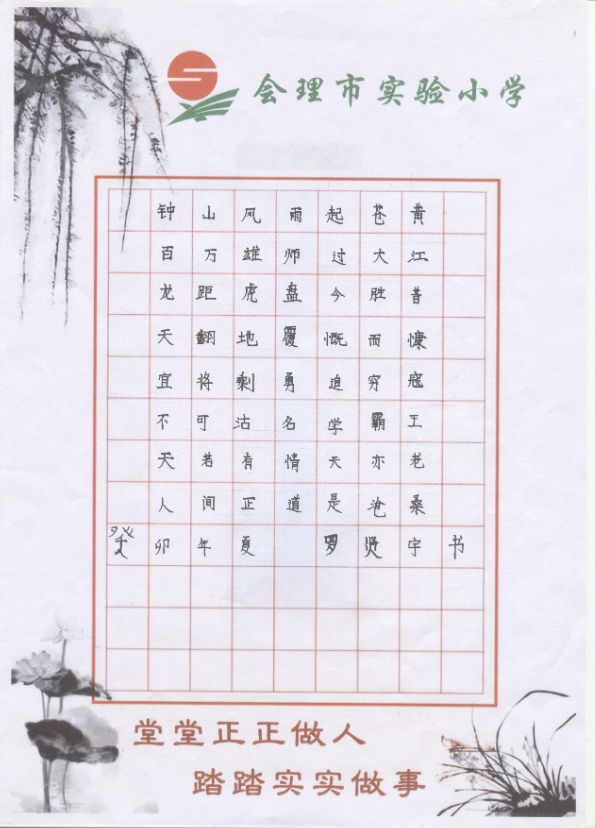 会理市实验小学
钟山风雨起苍黄
百万雄师过大江
龙距虎盘今胜昔
天翻地覆慨而慷
宜将剩勇追穷寇
不可沽名学霸王
天若有情天亦老
人间正道是沧桑
癸卯年夏 罗贤宇书
堂堂正正做人
踏踏实实做事